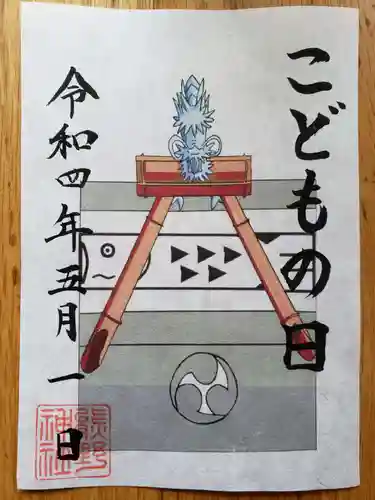 こどもの日
令和四年五月一日
張野
神社